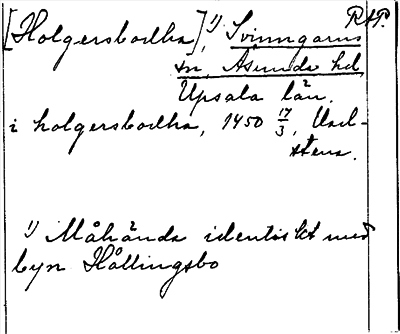 RAP.
[Holgersbodha]¹⁾, Svinngarns
sn, Åsunda hd
Upsala län.
i holgersbodha, 1450 17/3, Vad-
stena.
¹⁾ Måhända identiskt med
byn Hållingsbo